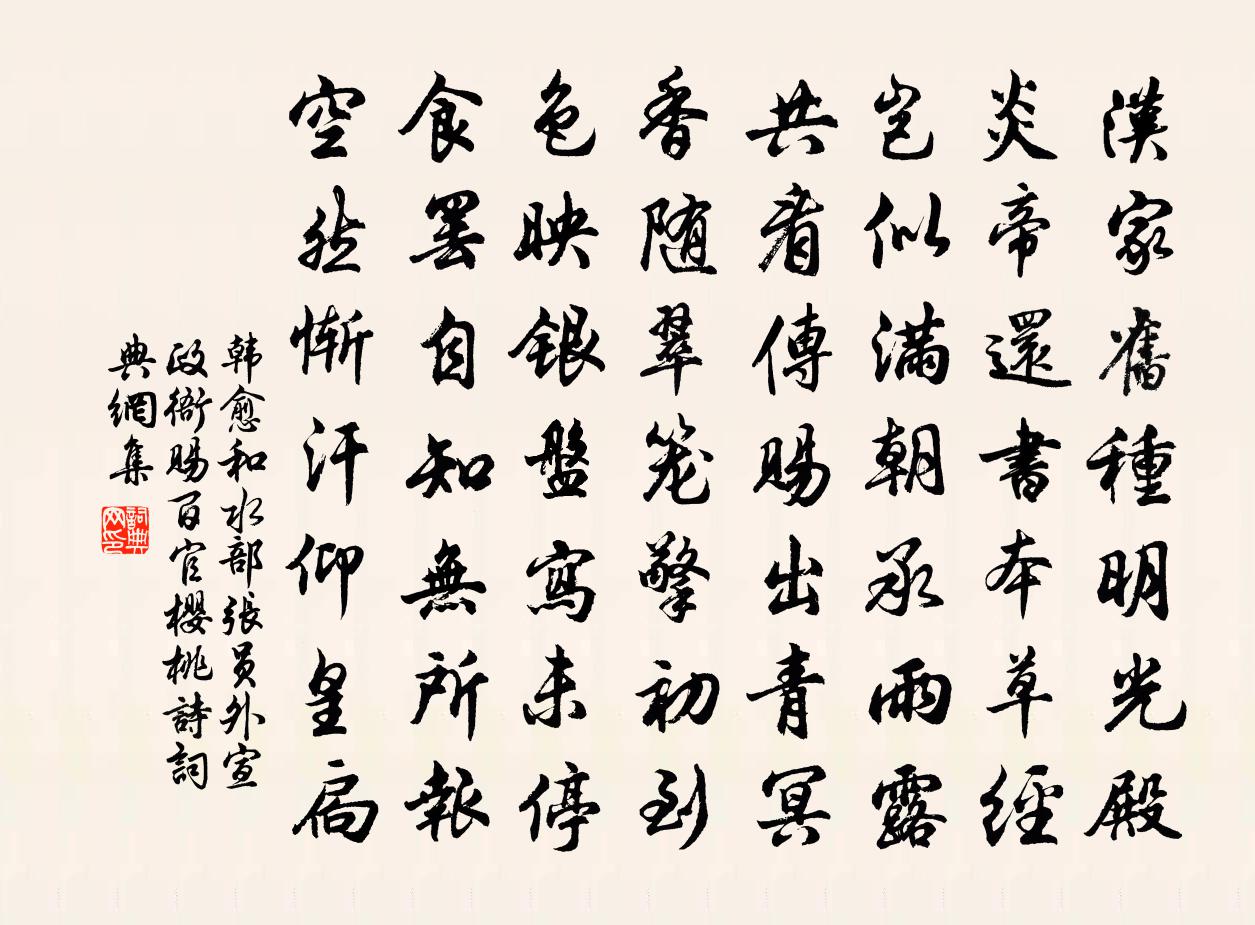 漢家舊種明光殿
炎帝還書本草經
豈似滿朝承雨露
共看傳賜出青冥
香隨翠笼擎初到
色映銀盤寫未停
食罷自知無所報
空然慚汗仰皇扃
韩愈和水部張員外宣
政衙賜百官櫻桃詩詞
典網集
詞典
网印